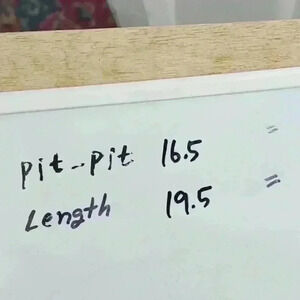 Pit-Pit 16.5 =
Length 19.5 =